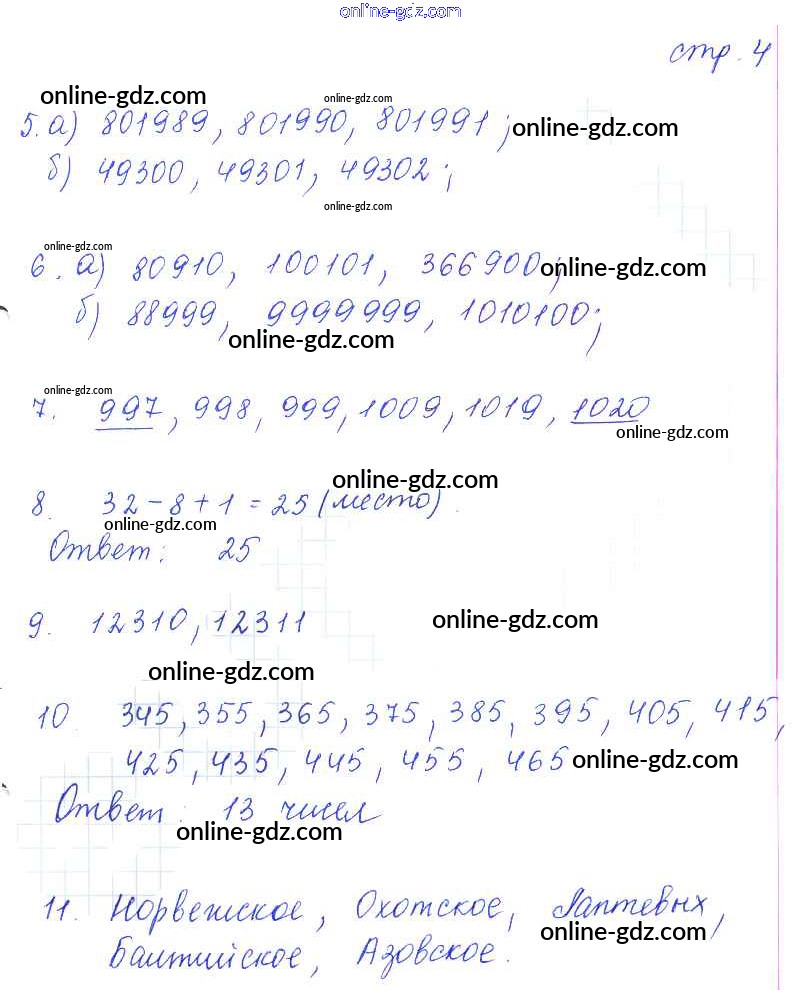 online-gdz.com
стр. 4
online-gdz.com
online-gdz.com
5. а) 801989, 801990, 801991; online-gdz.com
б) 49300, 49301, 49302;
online-gdz.com
online-gdz.com
6. а) 80910, 100101, 366900; online-gdz.com
б) 88999, 9999999, 1010100;
online-gdz.com
online-gdz.com
7. 997, 998, 999, 1009, 1019, 1020
online-gdz.com
online-gdz.com
8. 32 - 8 + 1 = 25 (место).
online-gdz.com
Ответ: 25
9. 12310, 12311 online-gdz.com
online-gdz.com
10. 345, 355, 365, 375, 385, 395, 405, 415,
425, 435, 445, 455, 465 online-gdz.com
Ответ: 13 чисел
online-gdz.com
11. Норвежское, Охотское, Лаптевых,
online-gdz.com
Балтийское, Азовское.